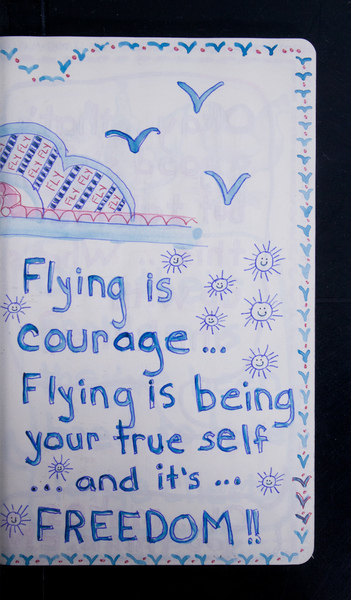 FLY FLY
FLY FLY FLY
FLY FLY FLY
Flying is
courage ...
Flying is being
your true self
... and it's ...
FREEDOM !!